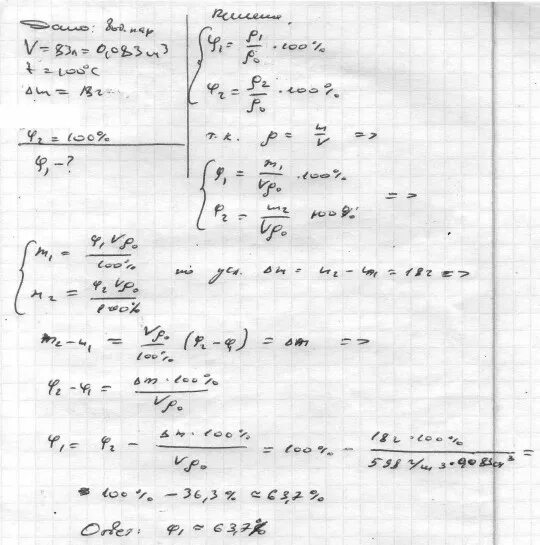 Дано: вод. пар
V = 83л = 0,083 м³
t = 100°C
Δm = 18г
φ₂ = 100%
φ₁ - ?
Решение.
φ₁ = ρ₁/ρ₀ · 100%
φ₂ = ρ₂/ρ₀ · 100%
т.к. ρ = m/V =>
φ₁ = m₁/Vρ₀ · 100%
φ₂ = m₂/Vρ₀ 100% =>
m₁ = φ₁Vρ₀/100%
m₂ = φ₂Vρ₀/100%
по усл. Δm = m₂ - m₁ = 18г =>
m₂ - m₁ = Vρ₀/100% (φ₂ - φ₁) = Δm =>
φ₂ - φ₁ = Δm · 100%/Vρ₀
φ₁ = φ₂ - Δm · 100%/Vρ₀ = 100% - 18г · 100%/598 г/м³ · 0,083м³ =
100% - 36,3% ≈ 63,7%
Ответ: φ₁ ≈ 63,7%